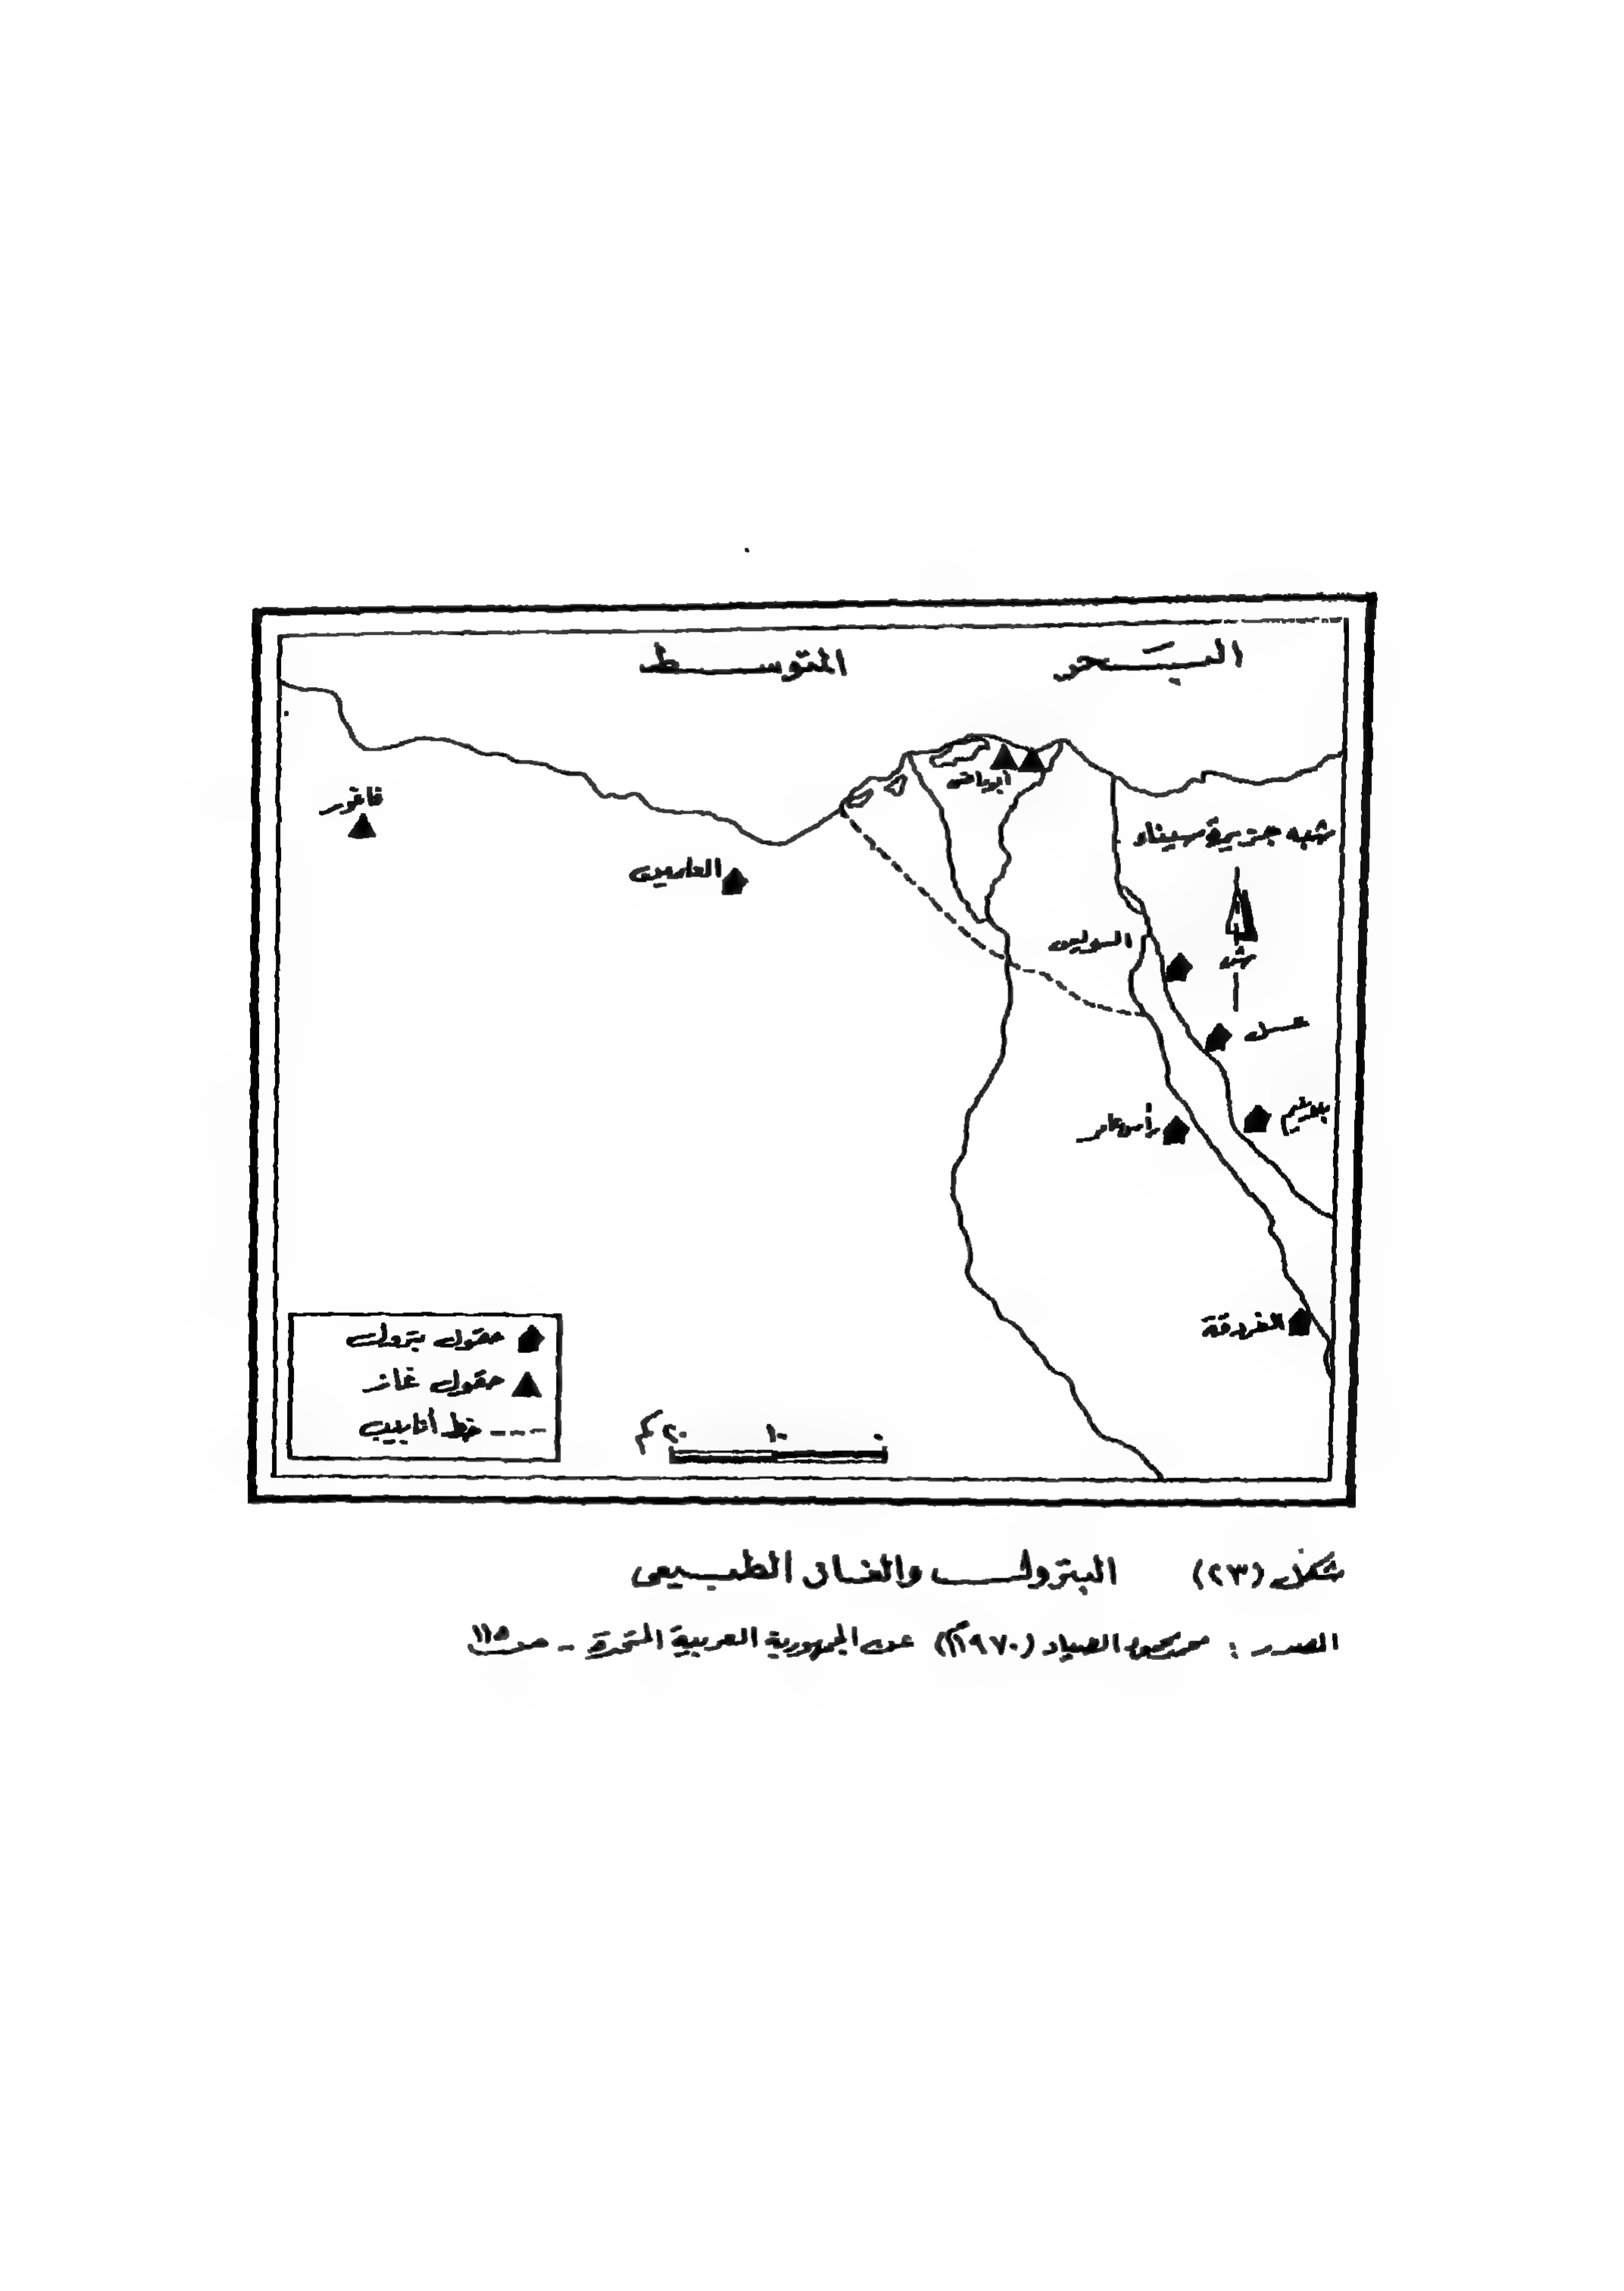 البحر المتوسط
أبو ماضى
فاغور
شبه جزيرة سيناء
العلمين
السويس
ش
عسل
بلاعيم
رأس عامر
الغردقة
حقول بترول
حقول غاز
خط أنابيب
٠ ١٠ ٢٠ كم
شكل (٢٣) البترول والغاز الطبيعى
المصدر : محمد محمود الصياد (١٩٧٠م) عن الجمهورية العربية المتحدة - صـ ١١٥